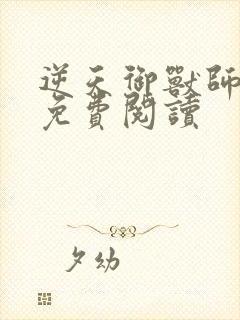 逆天御獸師
免費閱讀
夕幼